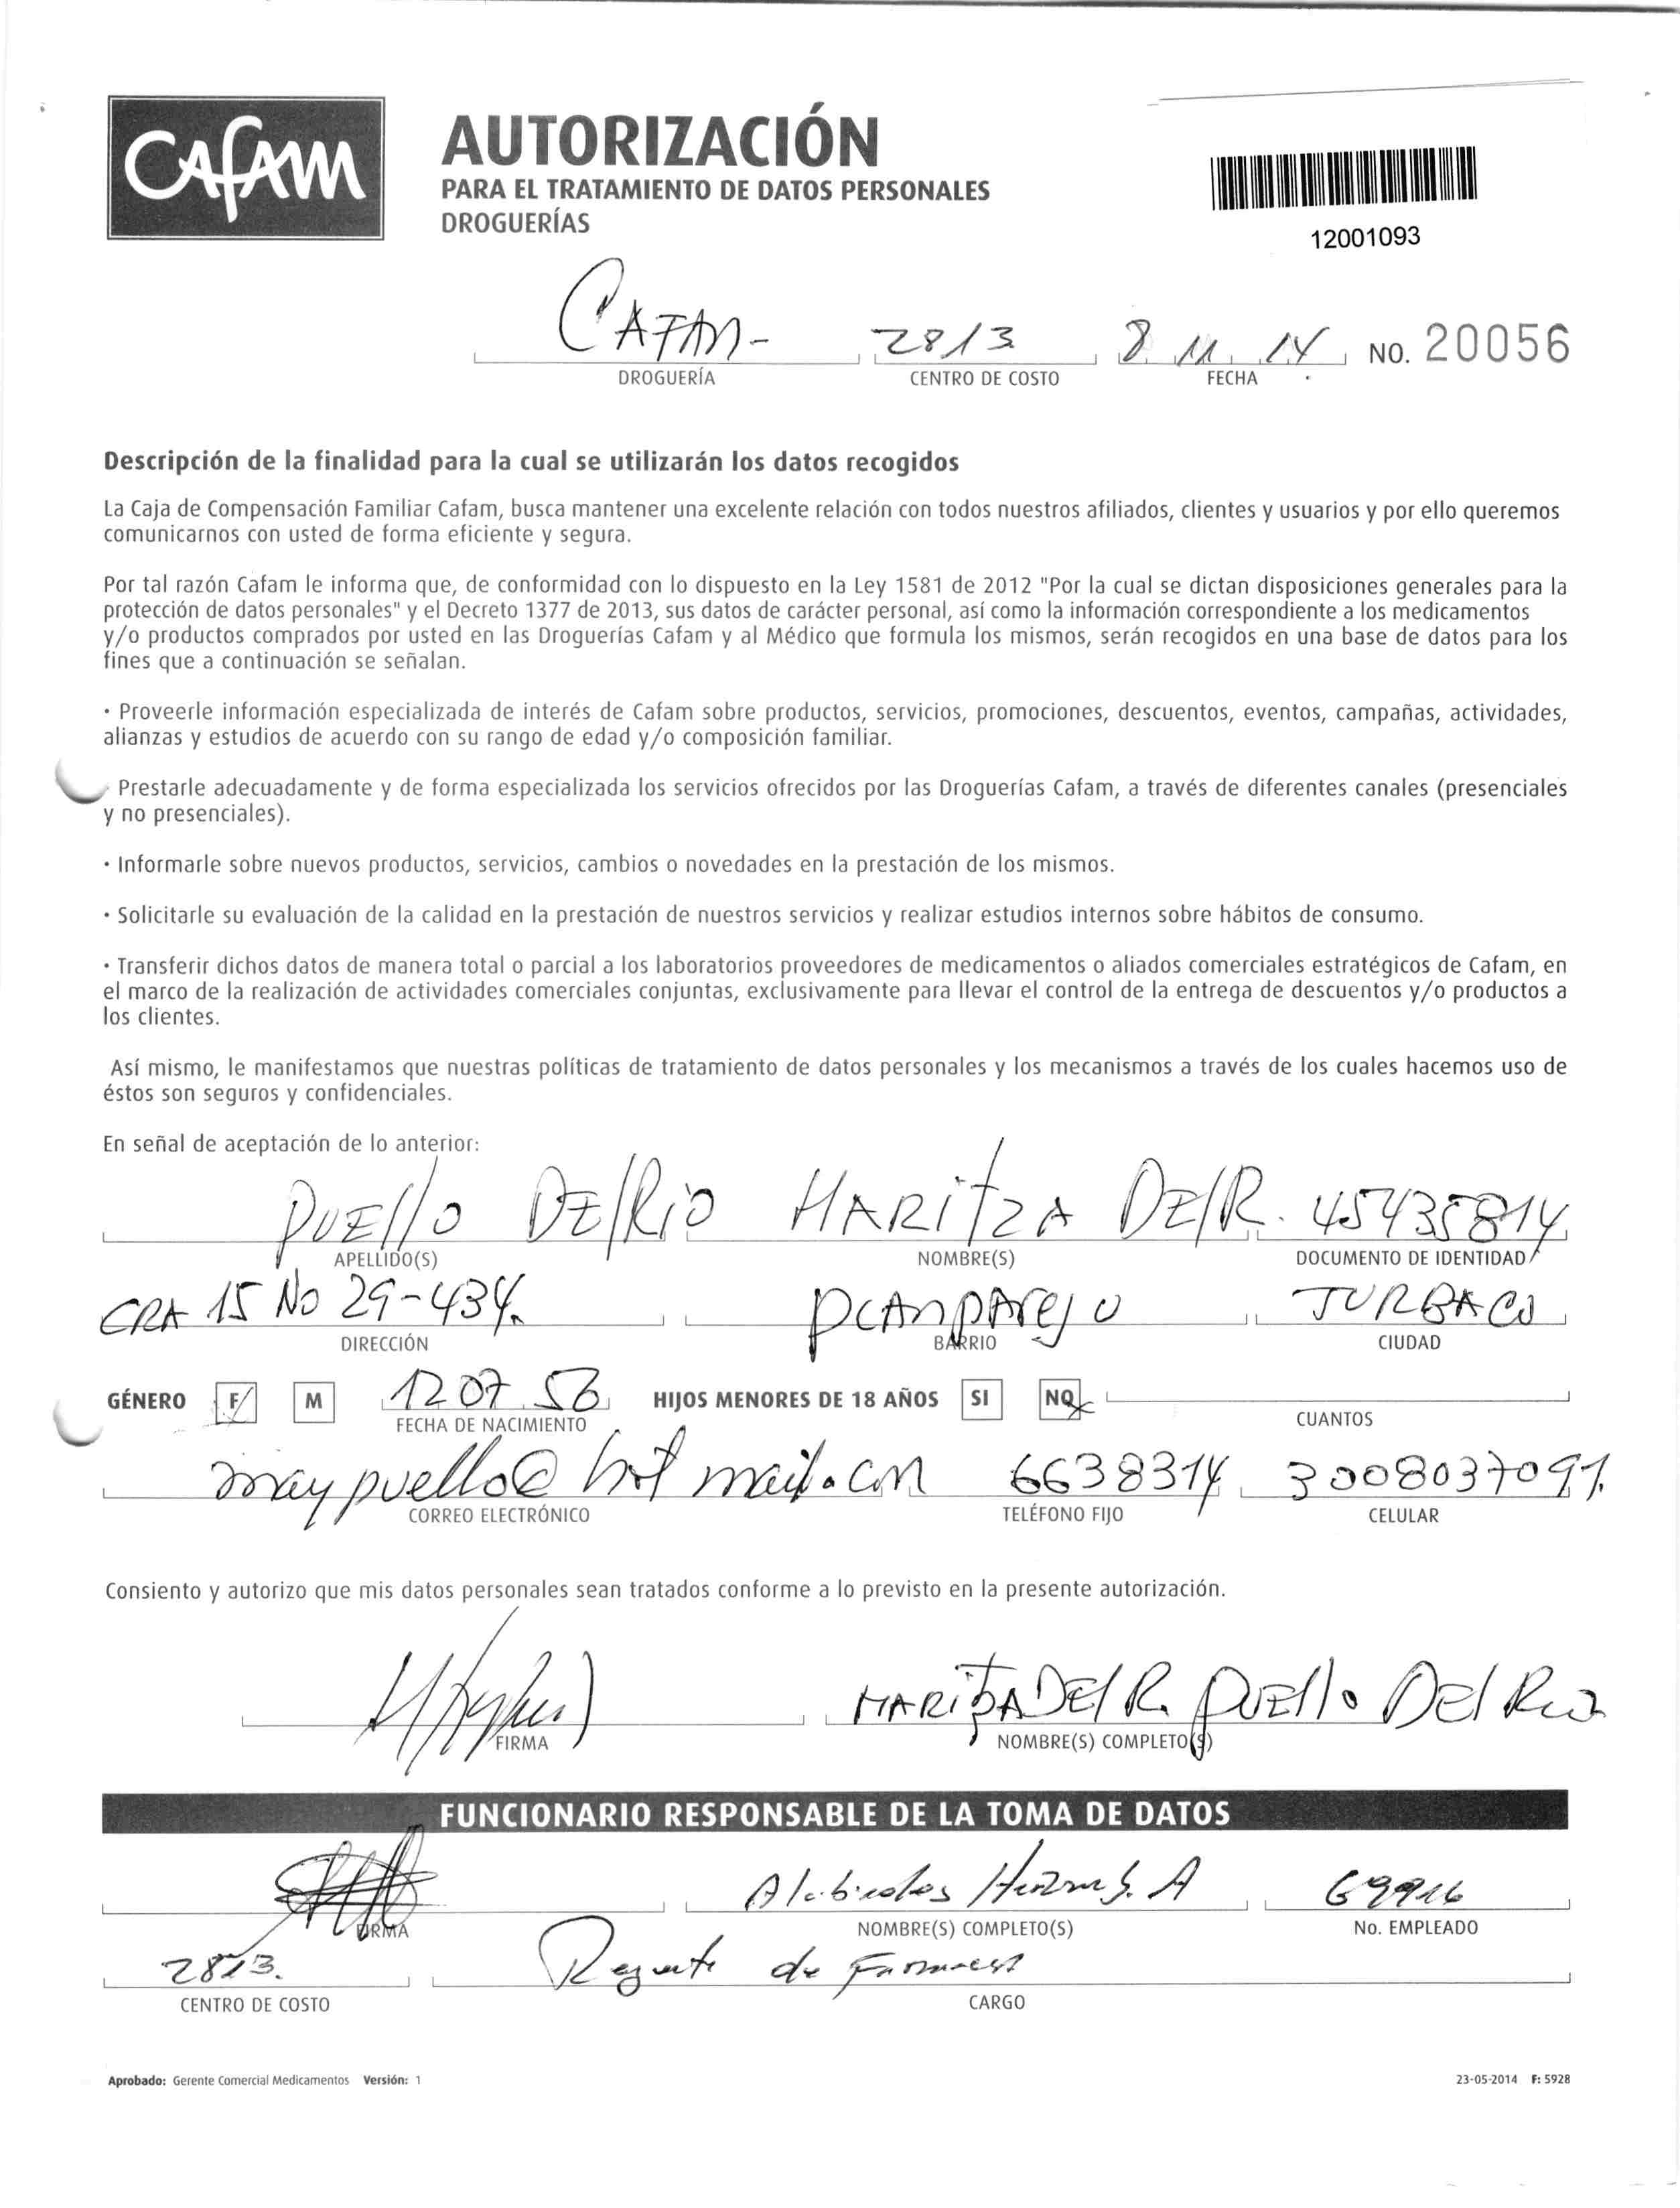 CAFAM
AUTORIZACIÓN
PARA EL TRATAMIENTO DE DATOS PERSONALES
DROGUERÍAS
12001093
CAFAM- 2813 8 11 14 NO. 20056
DROGUERÍA CENTRO DE COSTO FECHA
Descripción de la finalidad para la cual se utilizarán los datos recogidos
La Caja de Compensación Familiar Cafam, busca mantener una excelente relación con todos nuestros afiliados, clientes y usuarios y por ello queremos
comunicarnos con usted de forma eficiente y segura.
Por tal razón Cafam le informa que, de conformidad con lo dispuesto en la Ley 1581 de 2012 "Por la cual se dictan disposiciones generales para la
protección de datos personales" y el Decreto 1377 de 2013, sus datos de carácter personal, así como la información correspondiente a los medicamentos
y/o productos comprados por usted en las Droguerías Cafam y al Médico que formula los mismos, serán recogidos en una base de datos para los
fines que a continuación se señalan.
· Proveerle información especializada de interés de Cafam sobre productos, servicios, promociones, descuentos, eventos, campañas, actividades,
alianzas y estudios de acuerdo con su rango de edad y/o composición familiar.
· Prestarle adecuadamente y de forma especializada los servicios ofrecidos por las Droguerías Cafam, a través de diferentes canales (presenciales
y no presenciales).
· Informarle sobre nuevos productos, servicios, cambios o novedades en la prestación de los mismos.
· Solicitarle su evaluación de la calidad en la prestación de nuestros servicios y realizar estudios internos sobre hábitos de consumo.
· Transferir dichos datos de manera total o parcial a los laboratorios proveedores de medicamentos o aliados comerciales estratégicos de Cafam, en
el marco de la realización de actividades comerciales conjuntas, exclusivamente para llevar el control de la entrega de descuentos y/o productos a
los clientes.
Así mismo, le manifestamos que nuestras políticas de tratamiento de datos personales y los mecanismos a través de los cuales hacemos uso de
éstos son seguros y confidenciales.
En señal de aceptación de lo anterior:
PUELLO DELRIO MARITZA DELR. 45435814
APELLIDO(S) NOMBRE(S) DOCUMENTO DE IDENTIDAD
CRA 15 No 29-434. TURBACO
DIRECCIÓN BARRIO CIUDAD
GÉNERO F M 12 07 56 HIJOS MENORES DE 18 AÑOS SI NO
FECHA DE NACIMIENTO CUANTOS
maypuello@hotmail.com 6638314 3008037091
CORREO ELECTRÓNICO TELÉFONO FIJO CELULAR
Consiento y autorizo que mis datos personales sean tratados conforme a lo previsto en la presente autorización.
MARITZA DEl R. PUEllo DEl Rio
FIRMA NOMBRE(S) COMPLETO(S)
FUNCIONARIO RESPONSABLE DE LA TOMA DE DATOS
69916
FIRMA NOMBRE(S) COMPLETO(S) No. EMPLEADO
2813. Regente de Farmacia
CENTRO DE COSTO CARGO
Aprobado: Gerente Comercial Medicamentos Versión: 1 23-05-2014 F: 5928